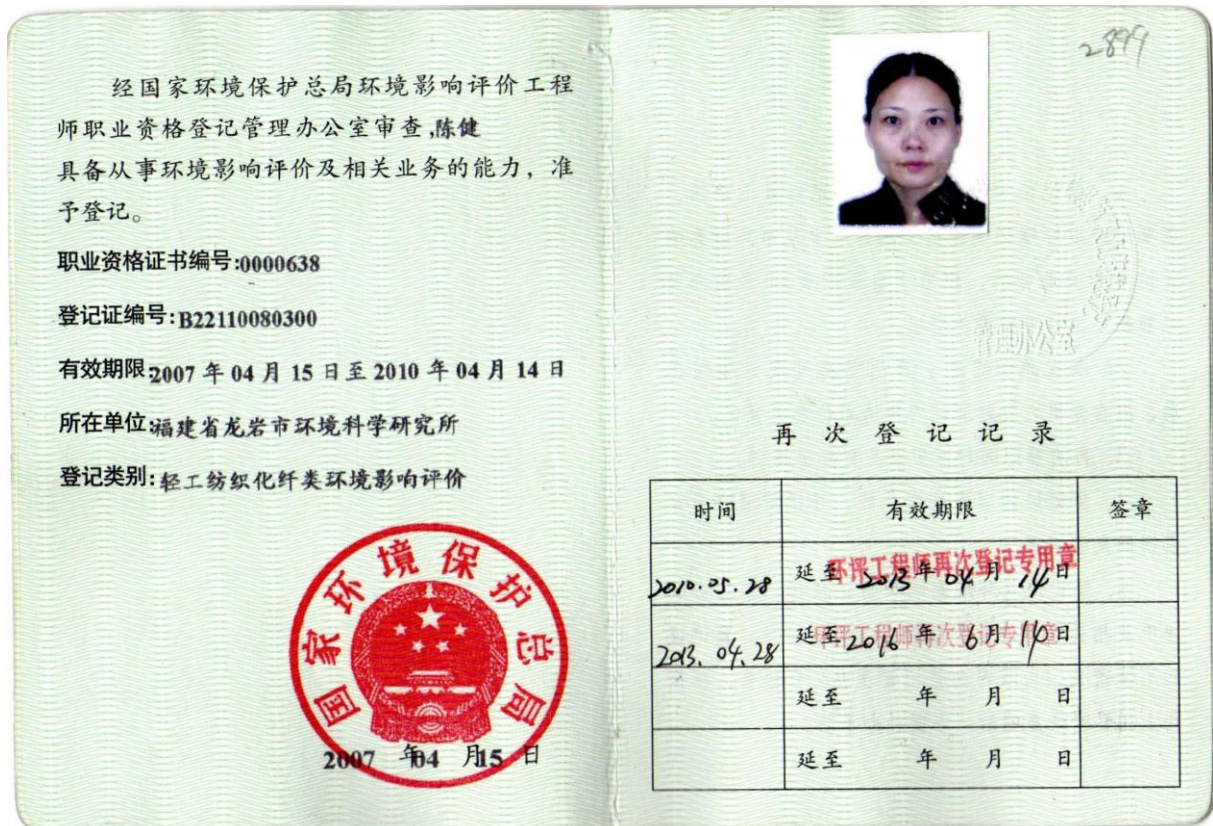 经国家环境保护总局环境影响评价工程
师职业资格登记管理办公室审查,陈健
具备从事环境影响评价及相关业务的能力，准
予登记。
职业资格证书编号:0000638
登记证编号:B22110080300
有效期限:2007 年 04 月 15 日至 2010 年 04 月 14 日
所在单位:福建省龙岩市环境科学研究所
登记类别:轻工纺织化纤类环境影响评价
国家环境保护总局
2007 年04 月15 日
2899
管理办公室
再次登记记录
时间 有效期限 签章
环评工程师再次登记专用章
2010.05.28 延至 2013 年 04 月 14 日
环评工程师再次登记专用章
2013.04.28 延至 2016 年 6 月 日
延至 年 月 日
延至 年 月 日